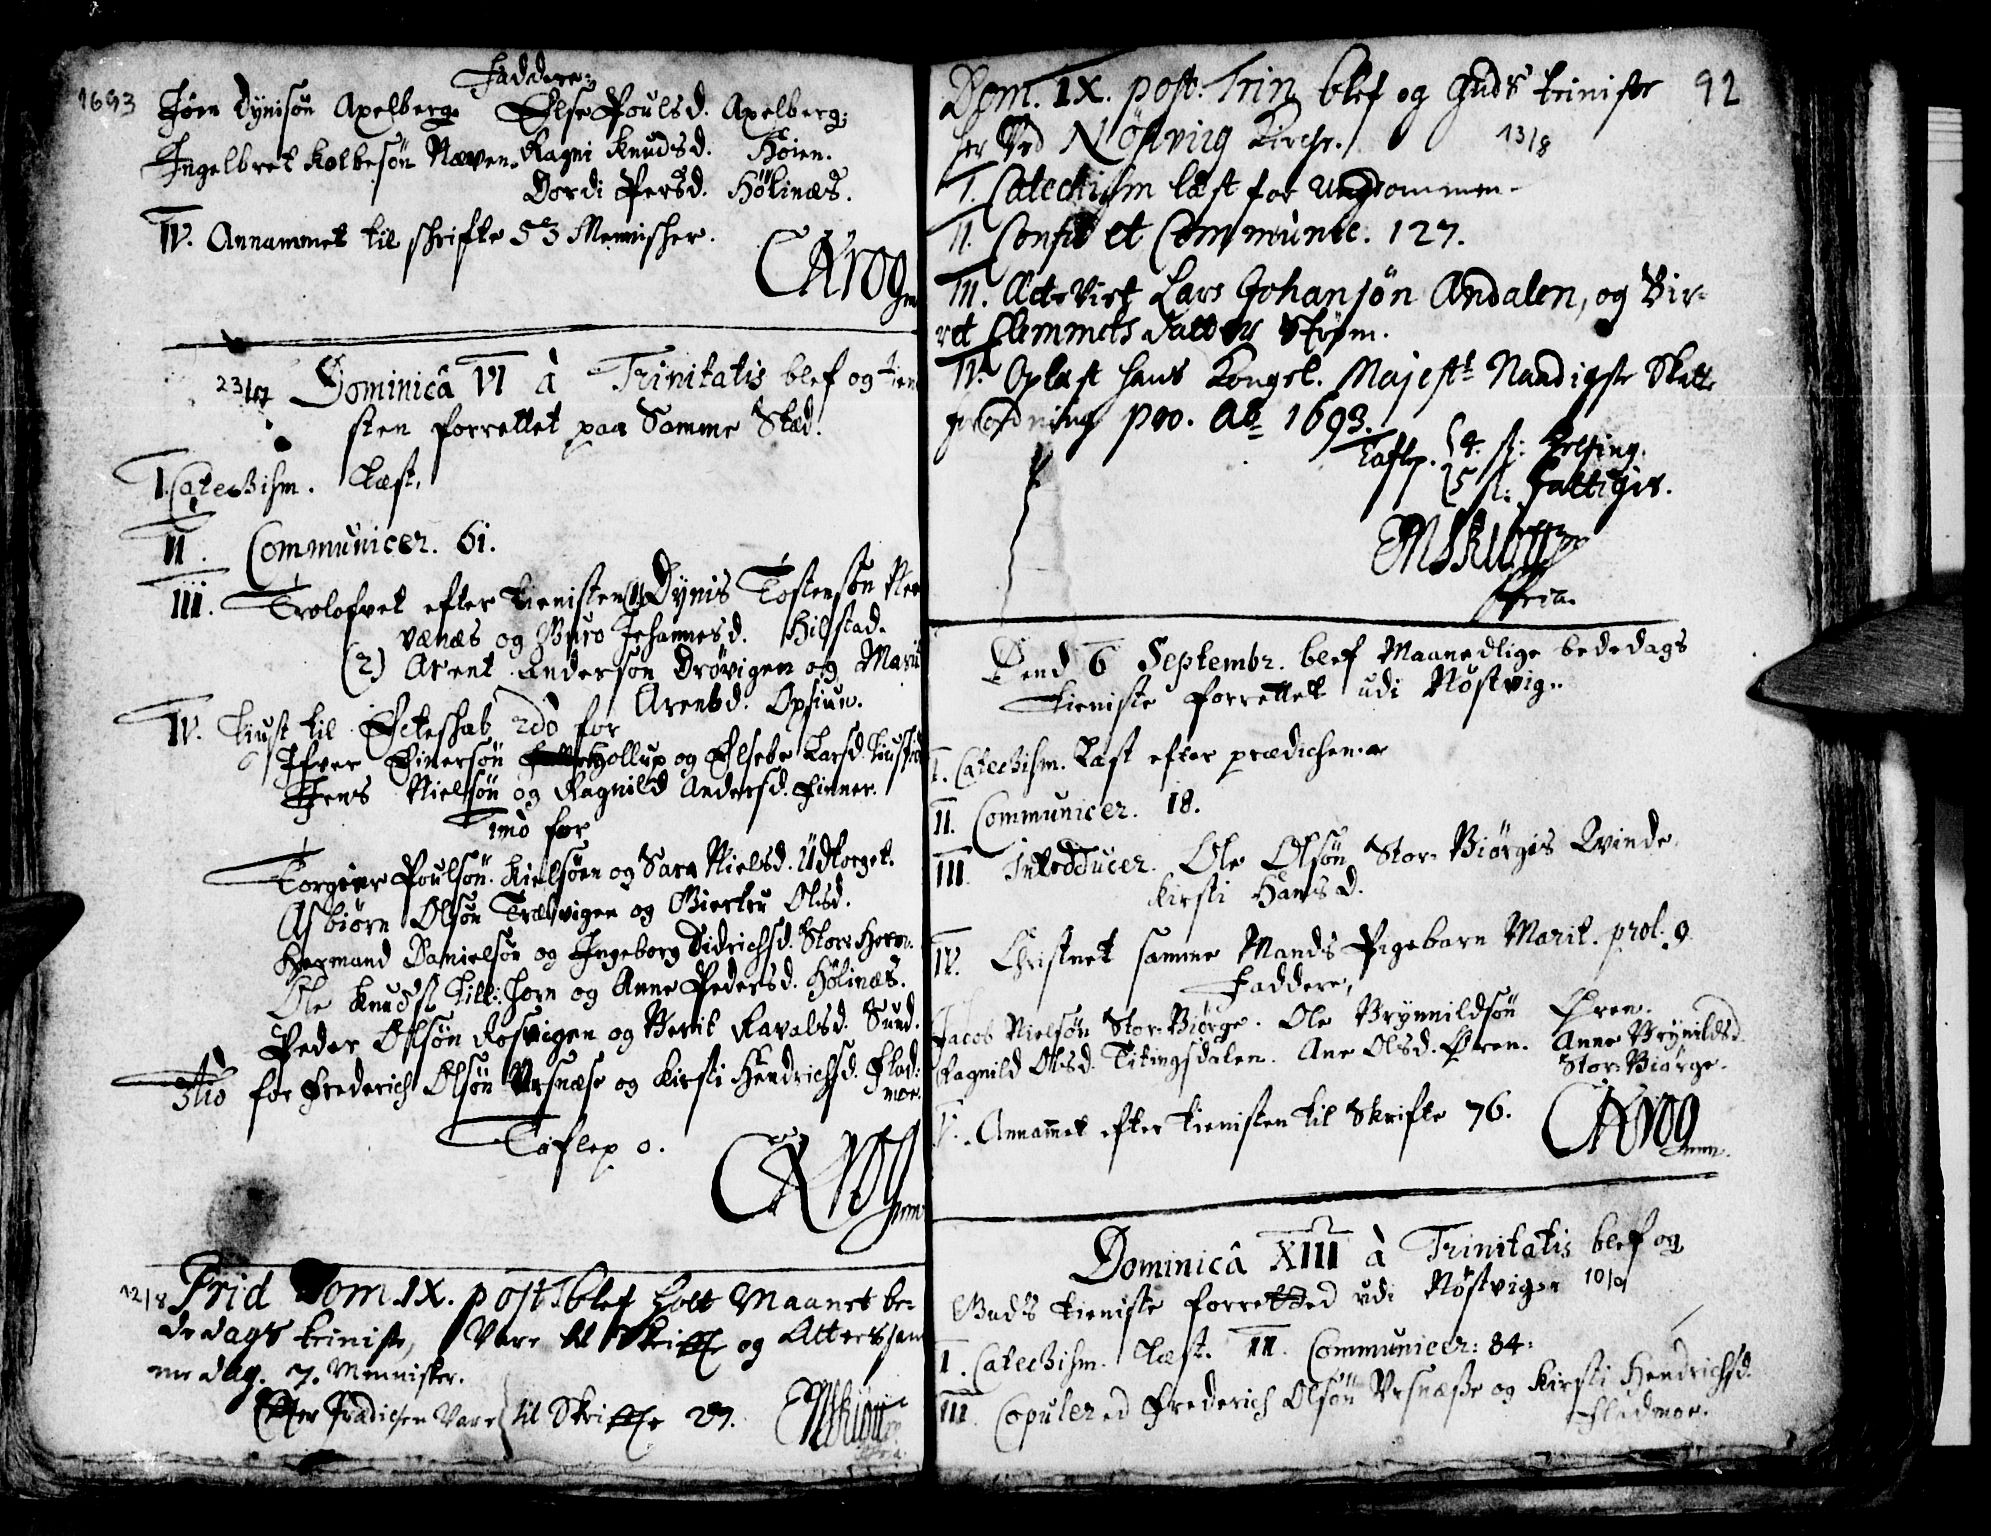 1693
Faddere:
Jørn Dynisøn Axelberg. Else Poulsd. Axelberg:
Ingelbret Kolbesøn Næven. Ragni Knudsd. Høien.
Dordi Persd. Hølinæs.
IV. Annammet til skrifte 53 Mennischer.
23/7 Dominicâ VI à Trinitatis blef og tien
sten forrettet paa Samme Stæd.
I. Catechism. Læst.
II. Communicer. 61.
III. Trolofvet efter tienisten (1) Dynis Tostensøn Ner
vænæs og Guro Johannesd. Hilstad.
(2) Arent Andersøn Drøvigen og Marit
Arentsd. Opsiun.
IV. Liust til Ecteskab 2do for
Ifver Einersøn Hollup og Elsebe Larsd.
Jens Nielsøn og Ragnild Andersd. Finner.
1mo for
Torgier Poulsøn. Kielsøen og Sara Nielsd. Udtorget.
Asbiørn Olsøn Trælvigen og Giertru Olsd.
Hermand Danielsøn og Ingeborg Didrichsd. Stor: Horn.
Ole Knuds. Lill: Horn og Anne Pedersd. Hølinæs.
Peder Olsøn Rosvigen og Berit Ravalsd. Sund.
3tio for Frederich Olsøn Vrsnæse og Kirsti Hendrichsd. Flad:
moe.
Taflep 0.
12/8 Prid Dom. IX. post T. blef holt Maanet be-
dedags tieniste, Vare til Skrifte og Alters sam
me dag. 7. Mennisker.
Efter Prædicken Vare til Skrifte 27.
92
Dom. IX. post. Trin blef og Guds tieniste
her Ved Nøstvig Kirche. 13/8
I. Catechism læst for Ungdommen
II. Confit et Communic. 127.
III. Ecte Viet Lars Johansøn Andalen, og Bir-
ret Clemmets datter Strøm.
IV. Oplæst hans Kongel. Majestt Naadigste Skatte
forordning pro. Ao 1693.
Taflep. 4. sk: Helsing.
5 sk: Fattiges.
Pria.
Dend 6 Septembr. blef Maanedlige bededags
Tieniste forrettet udi Nøstvig.
I. Catechism. Læst efter prædichenen
II. Communicer. 18.
III. Introducer. Ole Olsøn Stor-Biørges Qvinde
Kirsti Hansd.
IV. Christnet samme Mands Pigebarn Marit. prol. 9
Faddere,
Jacob Nielsøn Stor-Biørge. Ole Brynnildsøn Øren.
Ragnild Olsd. Titingsdalen. Ane Olsd. Øren. Anne Brynildsd.
Stor-Biørge.
V. Annamet efter tienisten til Skrifte 76.
Dominicâ XIII à Trinitatis blef og
Guds tieniste forretted udi Nøstvigen 10/9
I. Catechism. Læst. II. Communicer: 84:
III. Copulered Frederich Olsøn Vrsnæse og Kirsti Hendrichsd.
Fladmoe.